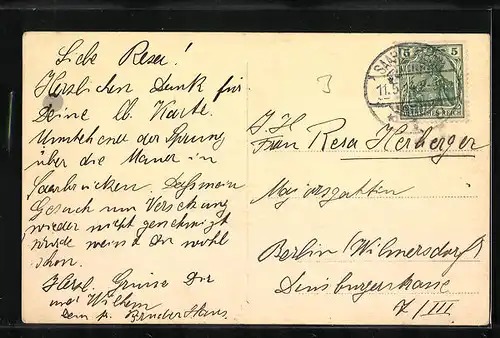 Liebe Resa!
Herzlichen Dank für
Deine lb. Karte.
Umstehend der Sprung
über die Mauer in
Saarbrücken. Daß mein
Gesuch um Versetzung
wieder nicht genehmigt
wurde weisst Du wohl
schon.
Herzl. Grüsse Dir
und Wilhem
Dein Bruder Hans
5 5
SAARBR
11.5
I. H.
Frau Resa Herberger
Majorsgattin
Berlin (Wilmersdorf)
Duisburgerstrasse
7/III